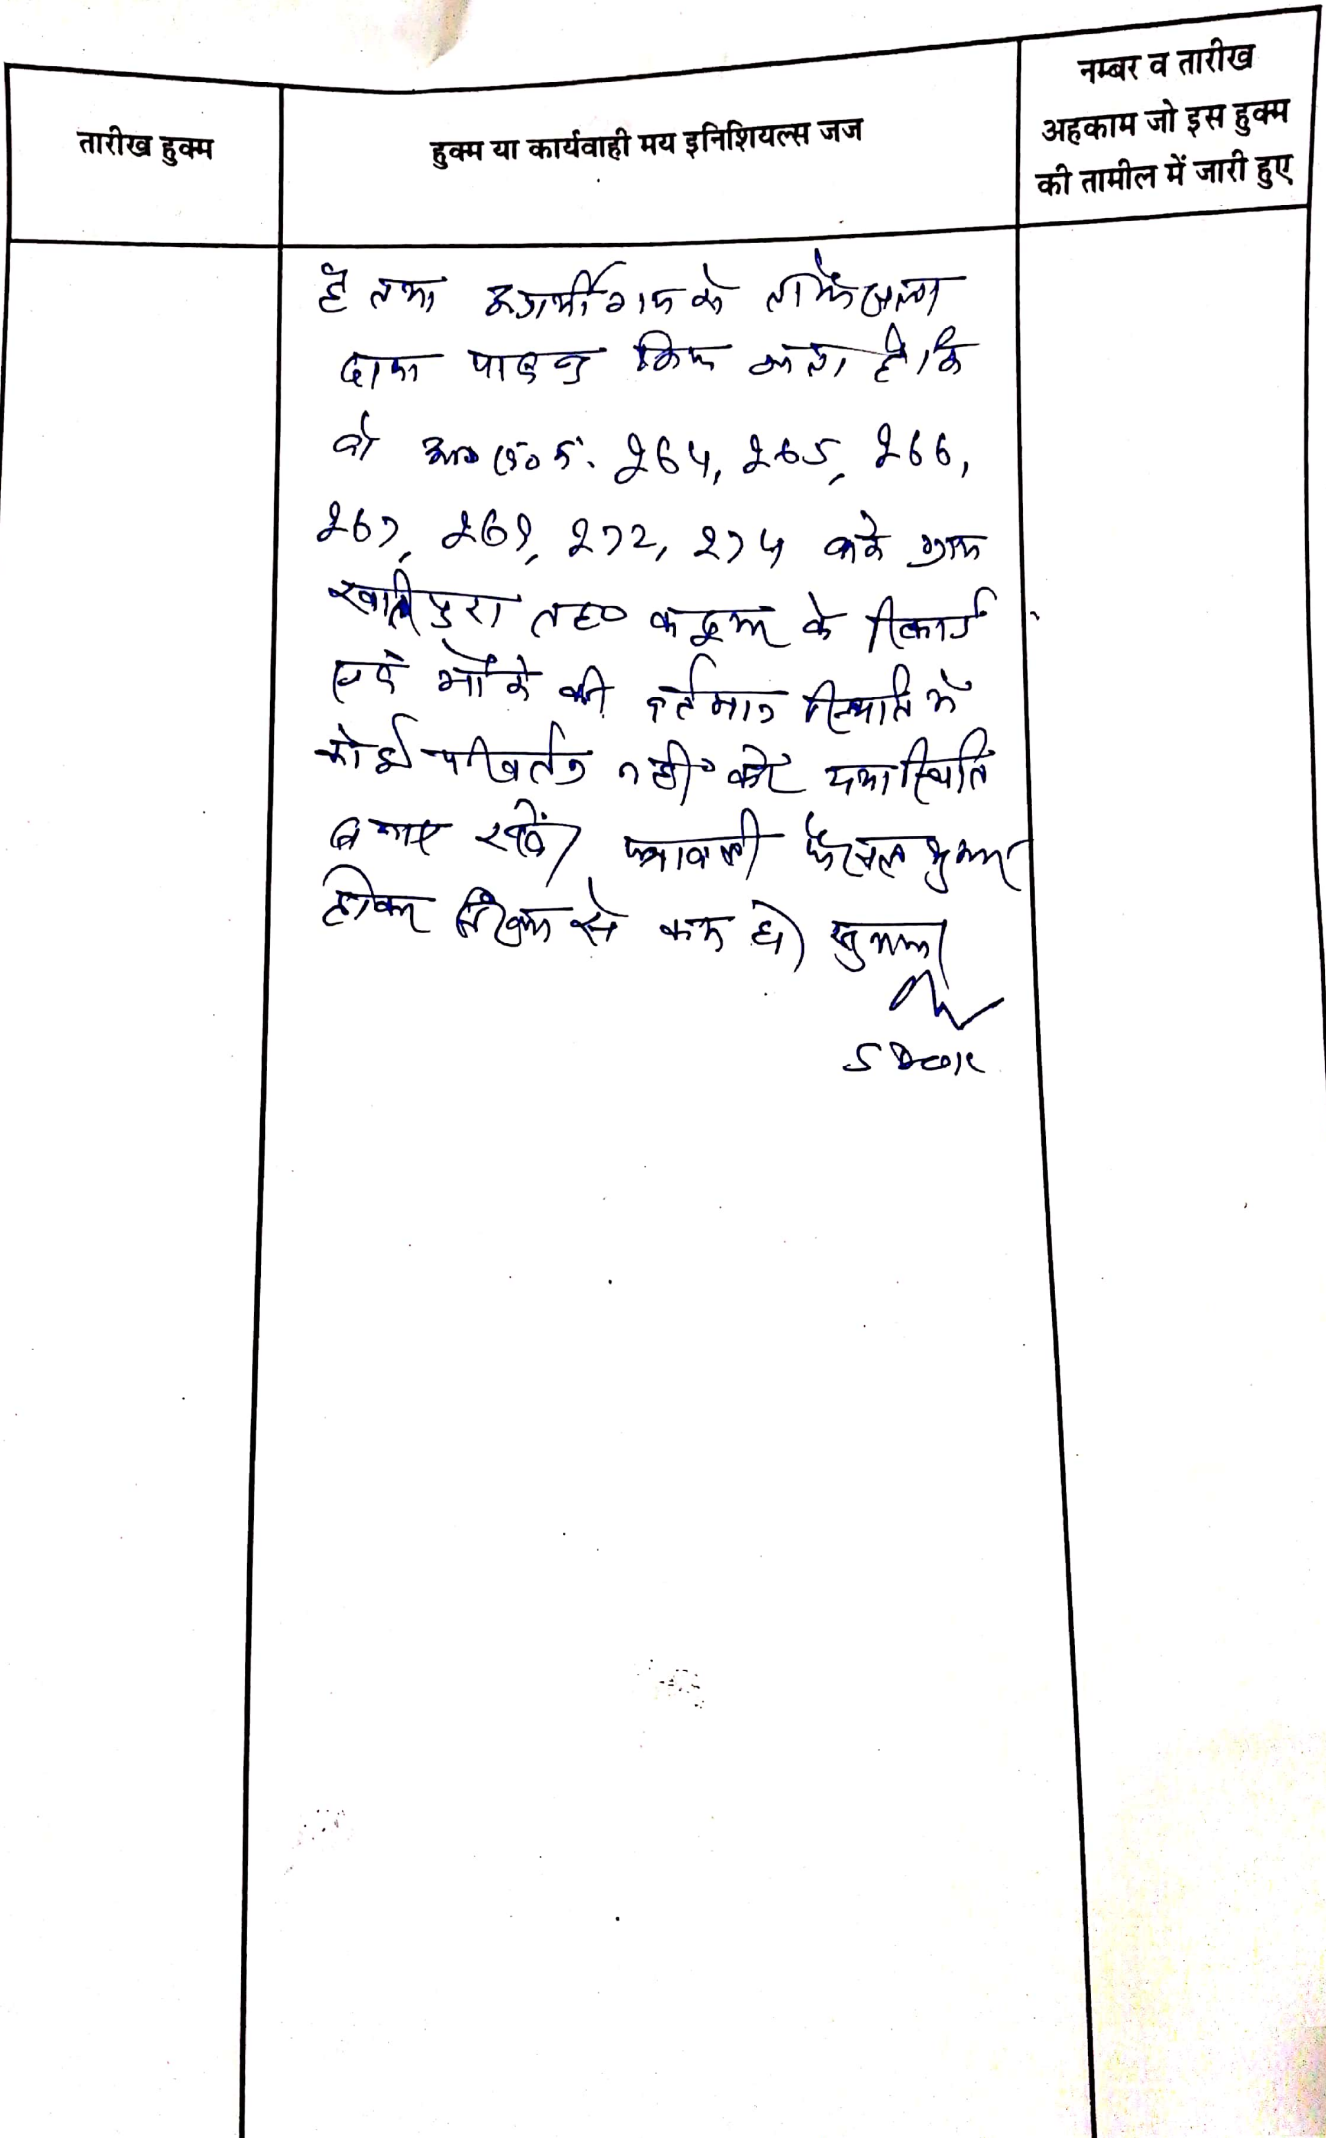 तारीख हुक्म
हुक्म या कार्यवाही मय इनिशियल्स जज
नम्बर व तारीख
अहकाम जो इस हुक्म
की तामील में जारी हुए
है तथा के
पाबन्द किया जाता है कि
वो आ० ख० नं. 264, 265, 266,
267, 269, 272, 274 वाके ग्राम
खातीपुरा तह० के रिकार्ड
एवं मौके की वर्तमान स्थिति में
कोई परिवर्तन नहीं करें यथास्थिति
बनाए रखें। पत्रावली फैसल शुमार
होकर से कम हो।